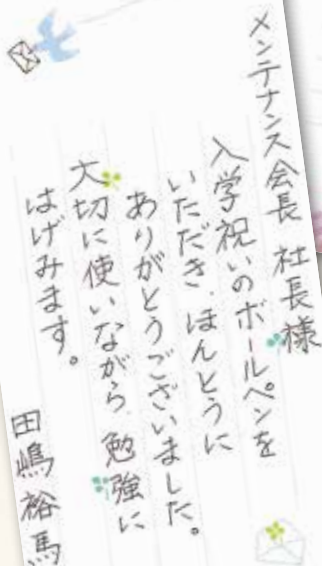 メンテナンス会長 社長様
入学祝いのボールペンを
いただき、ほんとうに
ありがとうございました。
大切に使いながら、勉強に
はげみます。
田嶋裕馬